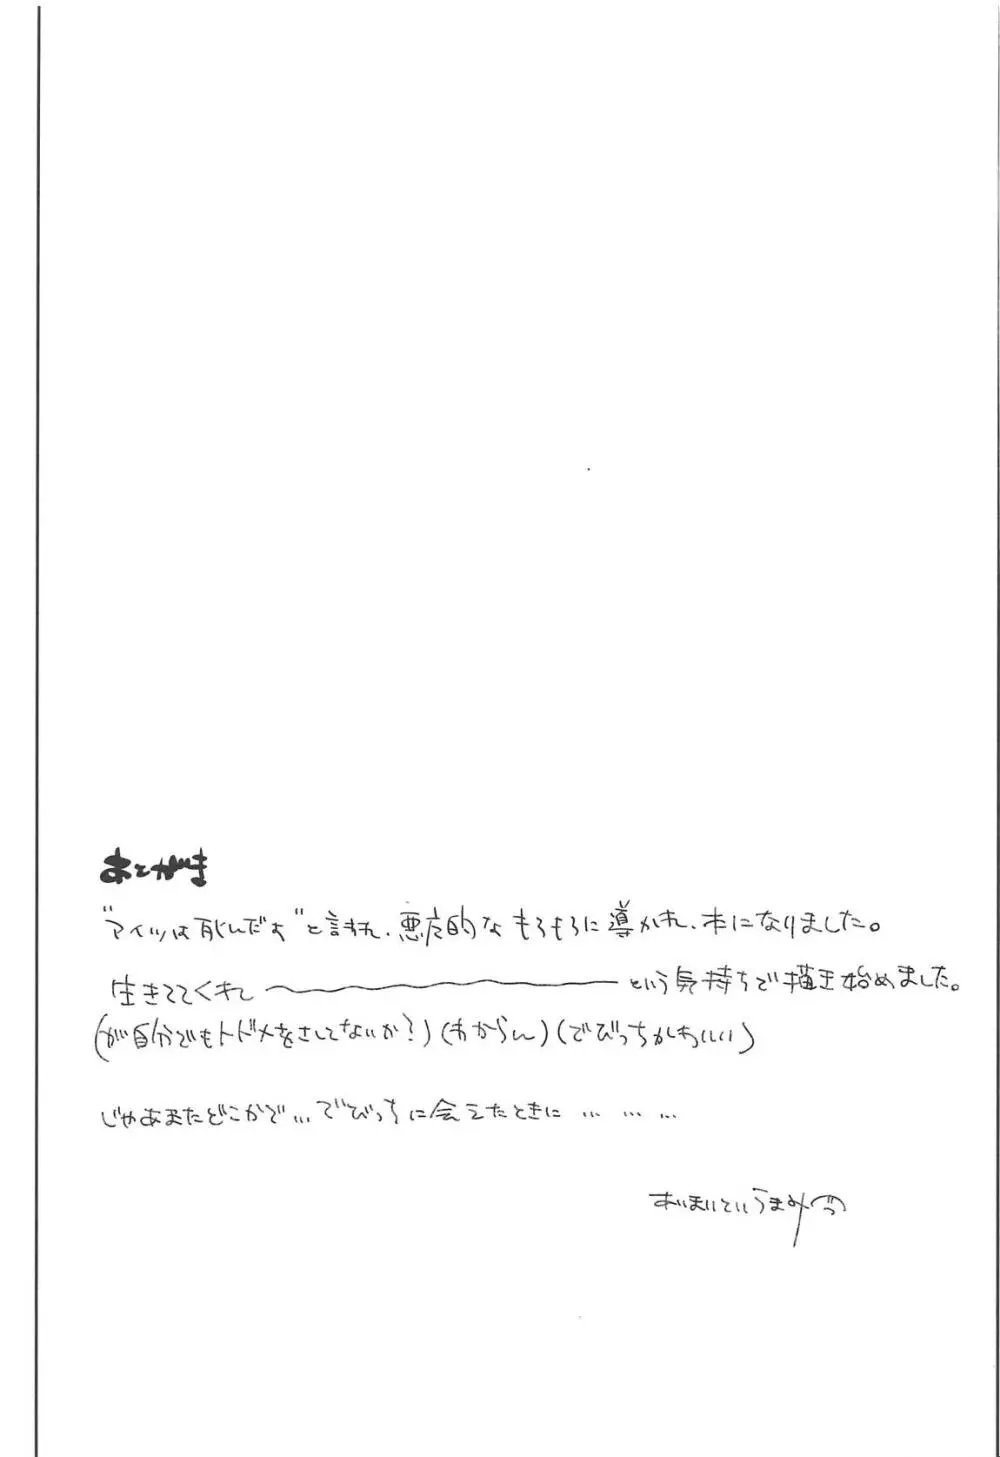 あとがき
"アイツは死んだよ"と言われ、悪魔的なもろもろに導かれ、本になりました。
生きててくれ〜〜〜という気持ちで描き始めました。
(が自分でもトドメをさしてないか?)(わからん)(でびっちかわいい)
じゃあまたどこかで...でびっちに会えたときに ... ... ...
あいまいというまみ